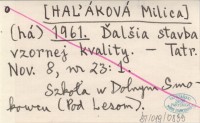 [HAĽÁKOVÁ Milica]
(há) 1961. Ďalšia stavba
vzornej kvality. – Tatr.
Nov. 8, nr 23: 1.
Szkoła w Dolnym Smo-
kowcu (Pod Lesom).